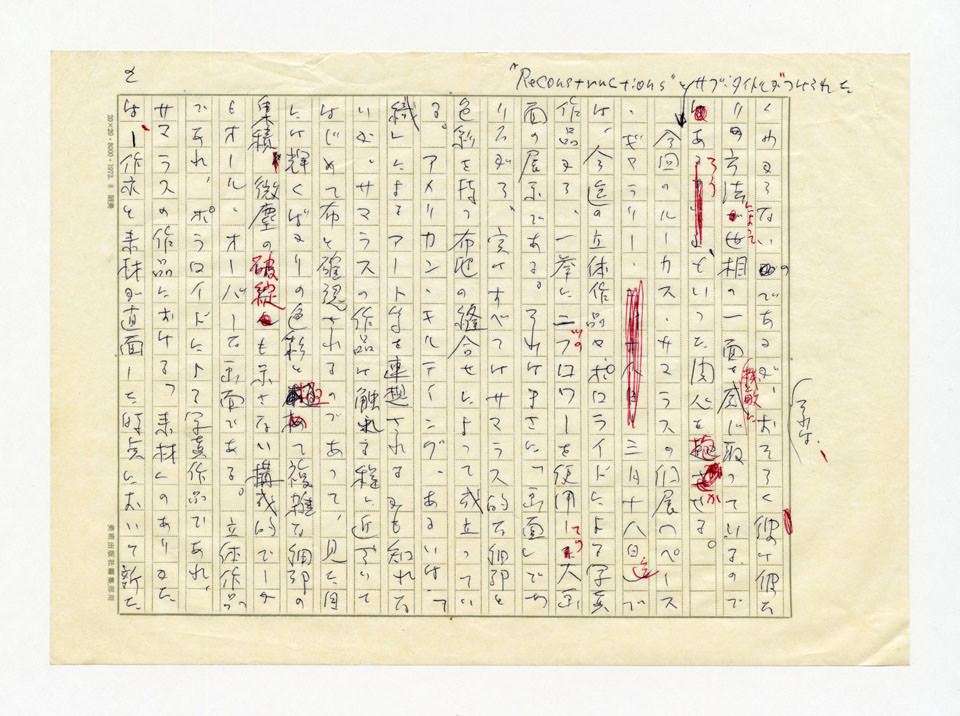 2
"Reconstructions" とサブ・タイトルがつけられた
くめるないのであるが、おそらく彼は彼な
りの方法によって世相の一面を敏感に感じ取っているので
あろう、といった関心を抱かせる。
今回のルーカス・サマラスの個展(ペース
・ギャラリー・三月十八日迄)で
は、今迄の立体作品やポロライドによる写真
作品より、一挙に二つのフロワーを使用しての大画
面の展示である。それはまさに「画面」であ
りながら、実はすべてはサマラス的な細部と
色彩を持つ布地の縫合せによって成立ってい
る。アメリカン・キルティング、あるいは「
織」によるアートをも連想されるかも知れな
いが、サマラスの作品は触れる程に近ずいて
はじめて布と確認されるのであって、見た目
には輝くばかりの色彩と極めて複雑な細部の
集積が微塵の破綻も示さない構成的でしか
もオール・オーバーな画面である。立体作品
であれ、ポラロイドによる写真作品であれ、
サマラスの作品における「素材」のありかた
は、作家と素材が直面した時点において新た
20×20・8000・1973.
美術出版社編集部用